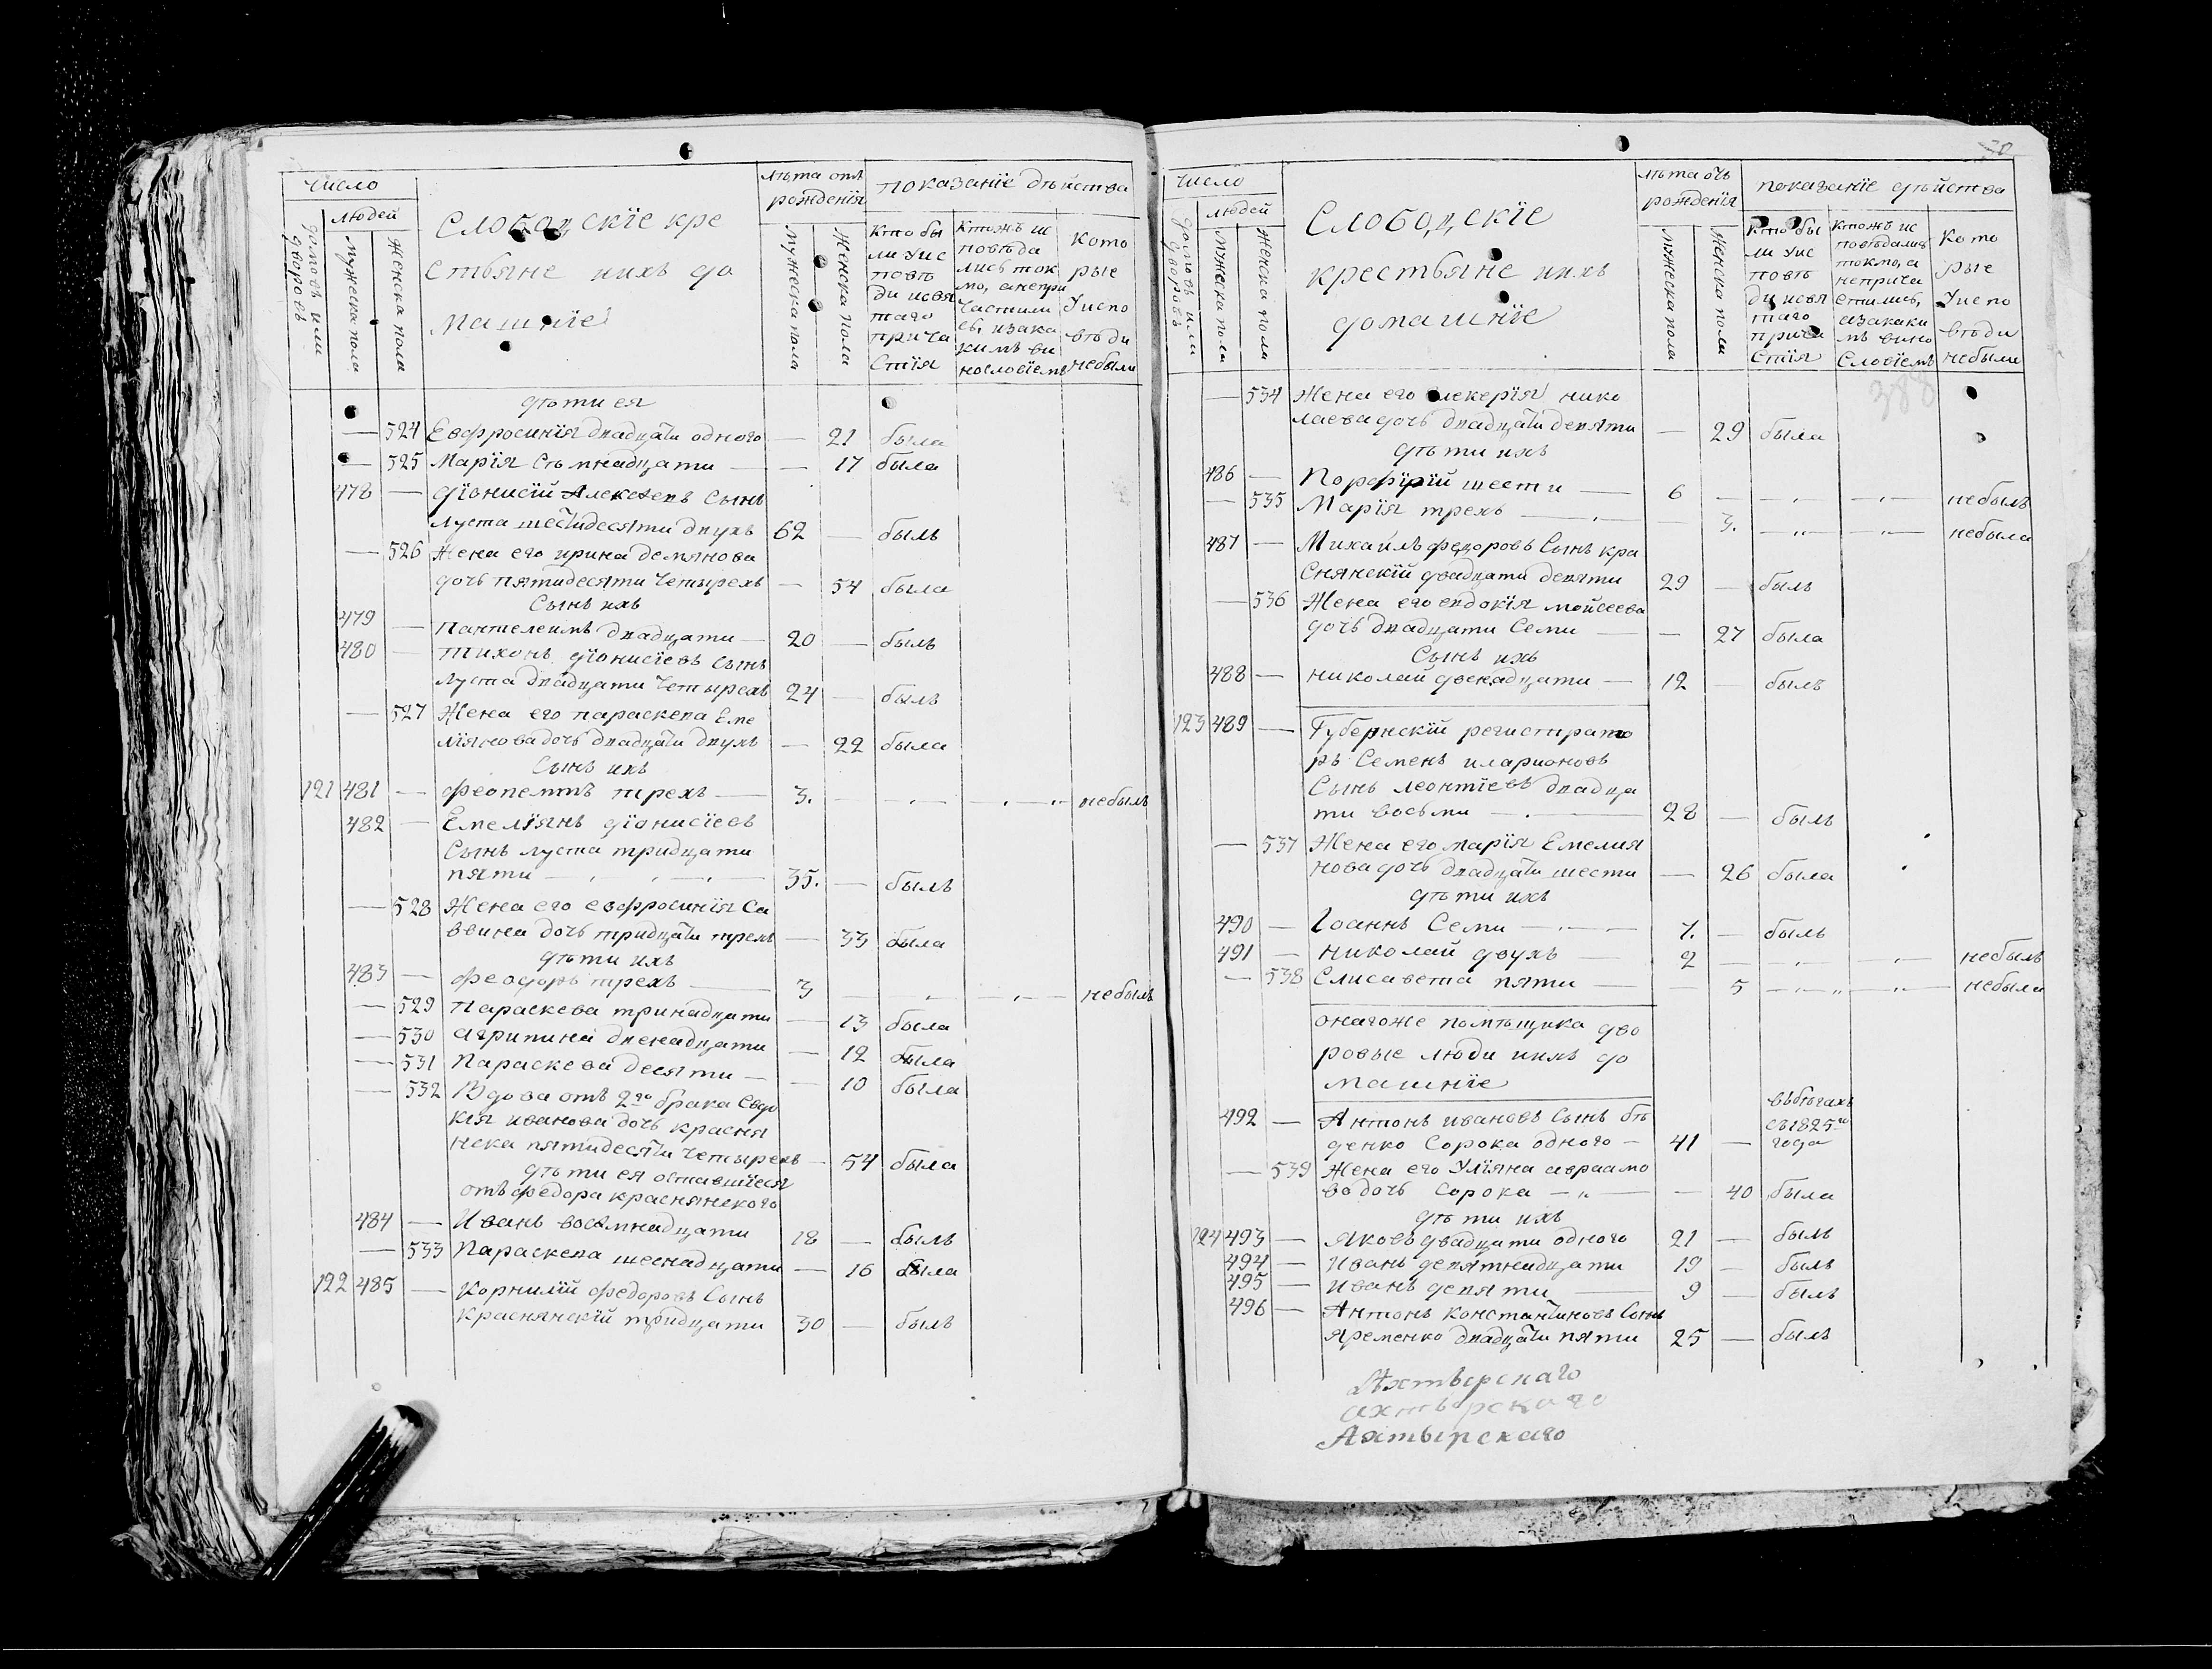 число
людей
домовъ или дворовъ
мужеска пола
женска пола
Слободскїе кре
стьяне ихъ до
машнїе
лѣта отъ
рожденїя
мужеска пола
женска пола
показанїе дѣйства
Кто бы
ли у ис
повѣ
ди и свя
таго
прича
стїя
Ктожъ ис
повѣда
лись ток
мо, а непри
частили
сь, и зака
кимъ ви
нословїемъ
Кото
рые
у испо
вѣди
небыли
дѣти ея
524 Евфросинїя двадцати одного — 21 была
525 Марїя семнадцати — 17 была
478 — Дїонисїй Алексѣевъ Сынъ
луста шестидесяти двухъ 62 — былъ
— 526 Жена его ирина демянова
дочь пятидесяти четырехъ — 54 была
Сынъ ихъ
479 — Пантелеимъ двадцати — 20 — былъ
480 — Тихонъ дїонисїевъ Сынъ
луста двадцати четырехъ 24 — былъ
— 527 Жена его параскева Еме
лїянова дочь двадцати двухъ — 22 была
Сынъ ихъ
121 481 — Феопемптъ трехъ — 3. — — — небылъ
482 — Емелїянъ дїонисїевъ
Сынъ луста тридцати
пяти — 35. — былъ
— 528 Жена его евфросинїя Са
ввина дочь тридцати трехъ — 33 была
дѣти ихъ
483 — Феодоръ трехъ — 3 — — небылъ
— 529 Параскева тринадцати — 13 была
— 530 Агрипина двенадцати — 12 была
— 531 Параскева десяти — — 10 была
— 532 Вдова отъ 2го брака Евдо
кїя иванова дочь красня
нска пятидесяти четырехъ — 54 была
дѣти ея оставшїеся
отъ федора краснянского
484 — Иванъ восемнадцати 18 — былъ
— 533 Параскева шеснадцати — 16 была
122 485 — Корнилїй федоровъ Сынъ
Краснянскїй тридцати 30 — былъ
30
число
людей
домовъ или дворовъ
мужеска пола
женска пола
Слободскїе
крестьяне ихъ
домашнїе
лѣта отъ
рожденїя
мужеска пола
женска пола
показанїе дѣйства
Кто бы
ли у ис
повѣ
ди и свя
таго
прича
стїя
Ктожъ ис
повѣдались
токмо, а
неприча
стились,
и закаки
мъ вино
словїемъ
Кото
рые
у испо
вѣди
небыли
388
— 534 Жена его Гликерїя нико
лаева дочь двадцати девяти — 29 была
дѣти ихъ
486 — Порфирїй шести — 6 — — — небылъ
— 535 Марїя трехъ — — 3. — — небыла
487 — Михаилъ федоровъ Сынъ кра
снянскїй двадцати девяти 29 — былъ
— 536 Жена его евдокїя мойсеева
дочь двадцати Семи — — 27 была
Сынъ ихъ
488 — николай двенадцати — 12 — былъ
123 489 — Губернскїй регистрато
ръ Семенъ иларионовъ
Сынъ леонтїевъ двадца
ти восьми — 28 — былъ
— 537 Жена его марїя Емелия
нова дочь двадцати шести — 26 была
дѣти ихъ
490 — Іоаннъ Семи — 7. — былъ
491 — николай двухъ — 2 — — — небылъ
— 538 Елисавета пяти — — 5 — — небыла
онагоже помѣщика дво
ровые люди ихъ до
машнїе
492 — Антонъ ивановъ Сынъ бѣ
денко Сорока одного — 41 — въбѣгахъ
съ 1825го
года
— 539 Жена его Улїяна авраамо
ва дочь Сорока — — 40 была
дѣти ихъ
124 493 — Яковъ двадцати одного 21 — былъ
494 — Иванъ девятнадцати 19 — былъ
495 — Иванъ девяти — 9 — былъ
496 — Антонъ константиновъ Сынъ
Яременко двадцати пяти 25 — былъ
Ахтырскаго
ахтырскаго
Ахтырскаго